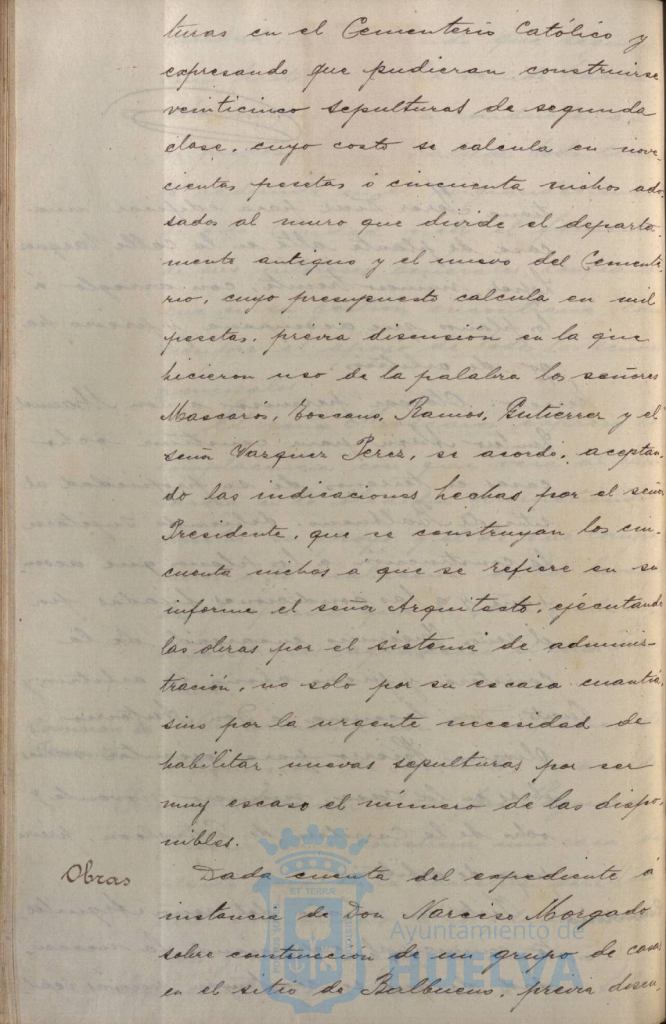 turas en el Cementerio Católico y
expresando que pudieran construirse
veinticinco sepulturas de segunda
clase, cuyo costo se calcula en nove-
cientas pesetas ó cincuenta nichos ado-
sados al muro que divide el departa-
mento antiguo y el nuevo del Cemente-
rio, cuyo presupuesto calcula en mil
pesetas, prévia discusión en la que
hicieron uso de la palabra los señores
Mascarós, Toscano, Ramos, Gutierrez y el
señor Vazquez Perez, se acordó, aceptan-
do las indicaciones hechas por el señor
Presidente, que se construyan los cin-
cuenta nichos á que se refiere en su
informe el señor Arquitecto, ejecutando
las obras por el sistema de adminis-
tración, no solo por su escasa cuantía,
sino por la urgente necesidad de
habilitar nuevas sepulturas por ser
muy escaso el número de las dispo-
nibles.
Obras
Dada cuenta del expediente á
instancia de Don Narciso Morgado
sobre construcción de un grupo de casas
en el sitio de Balbueno, prévia discu-
Ayuntamiento de
HUELVA